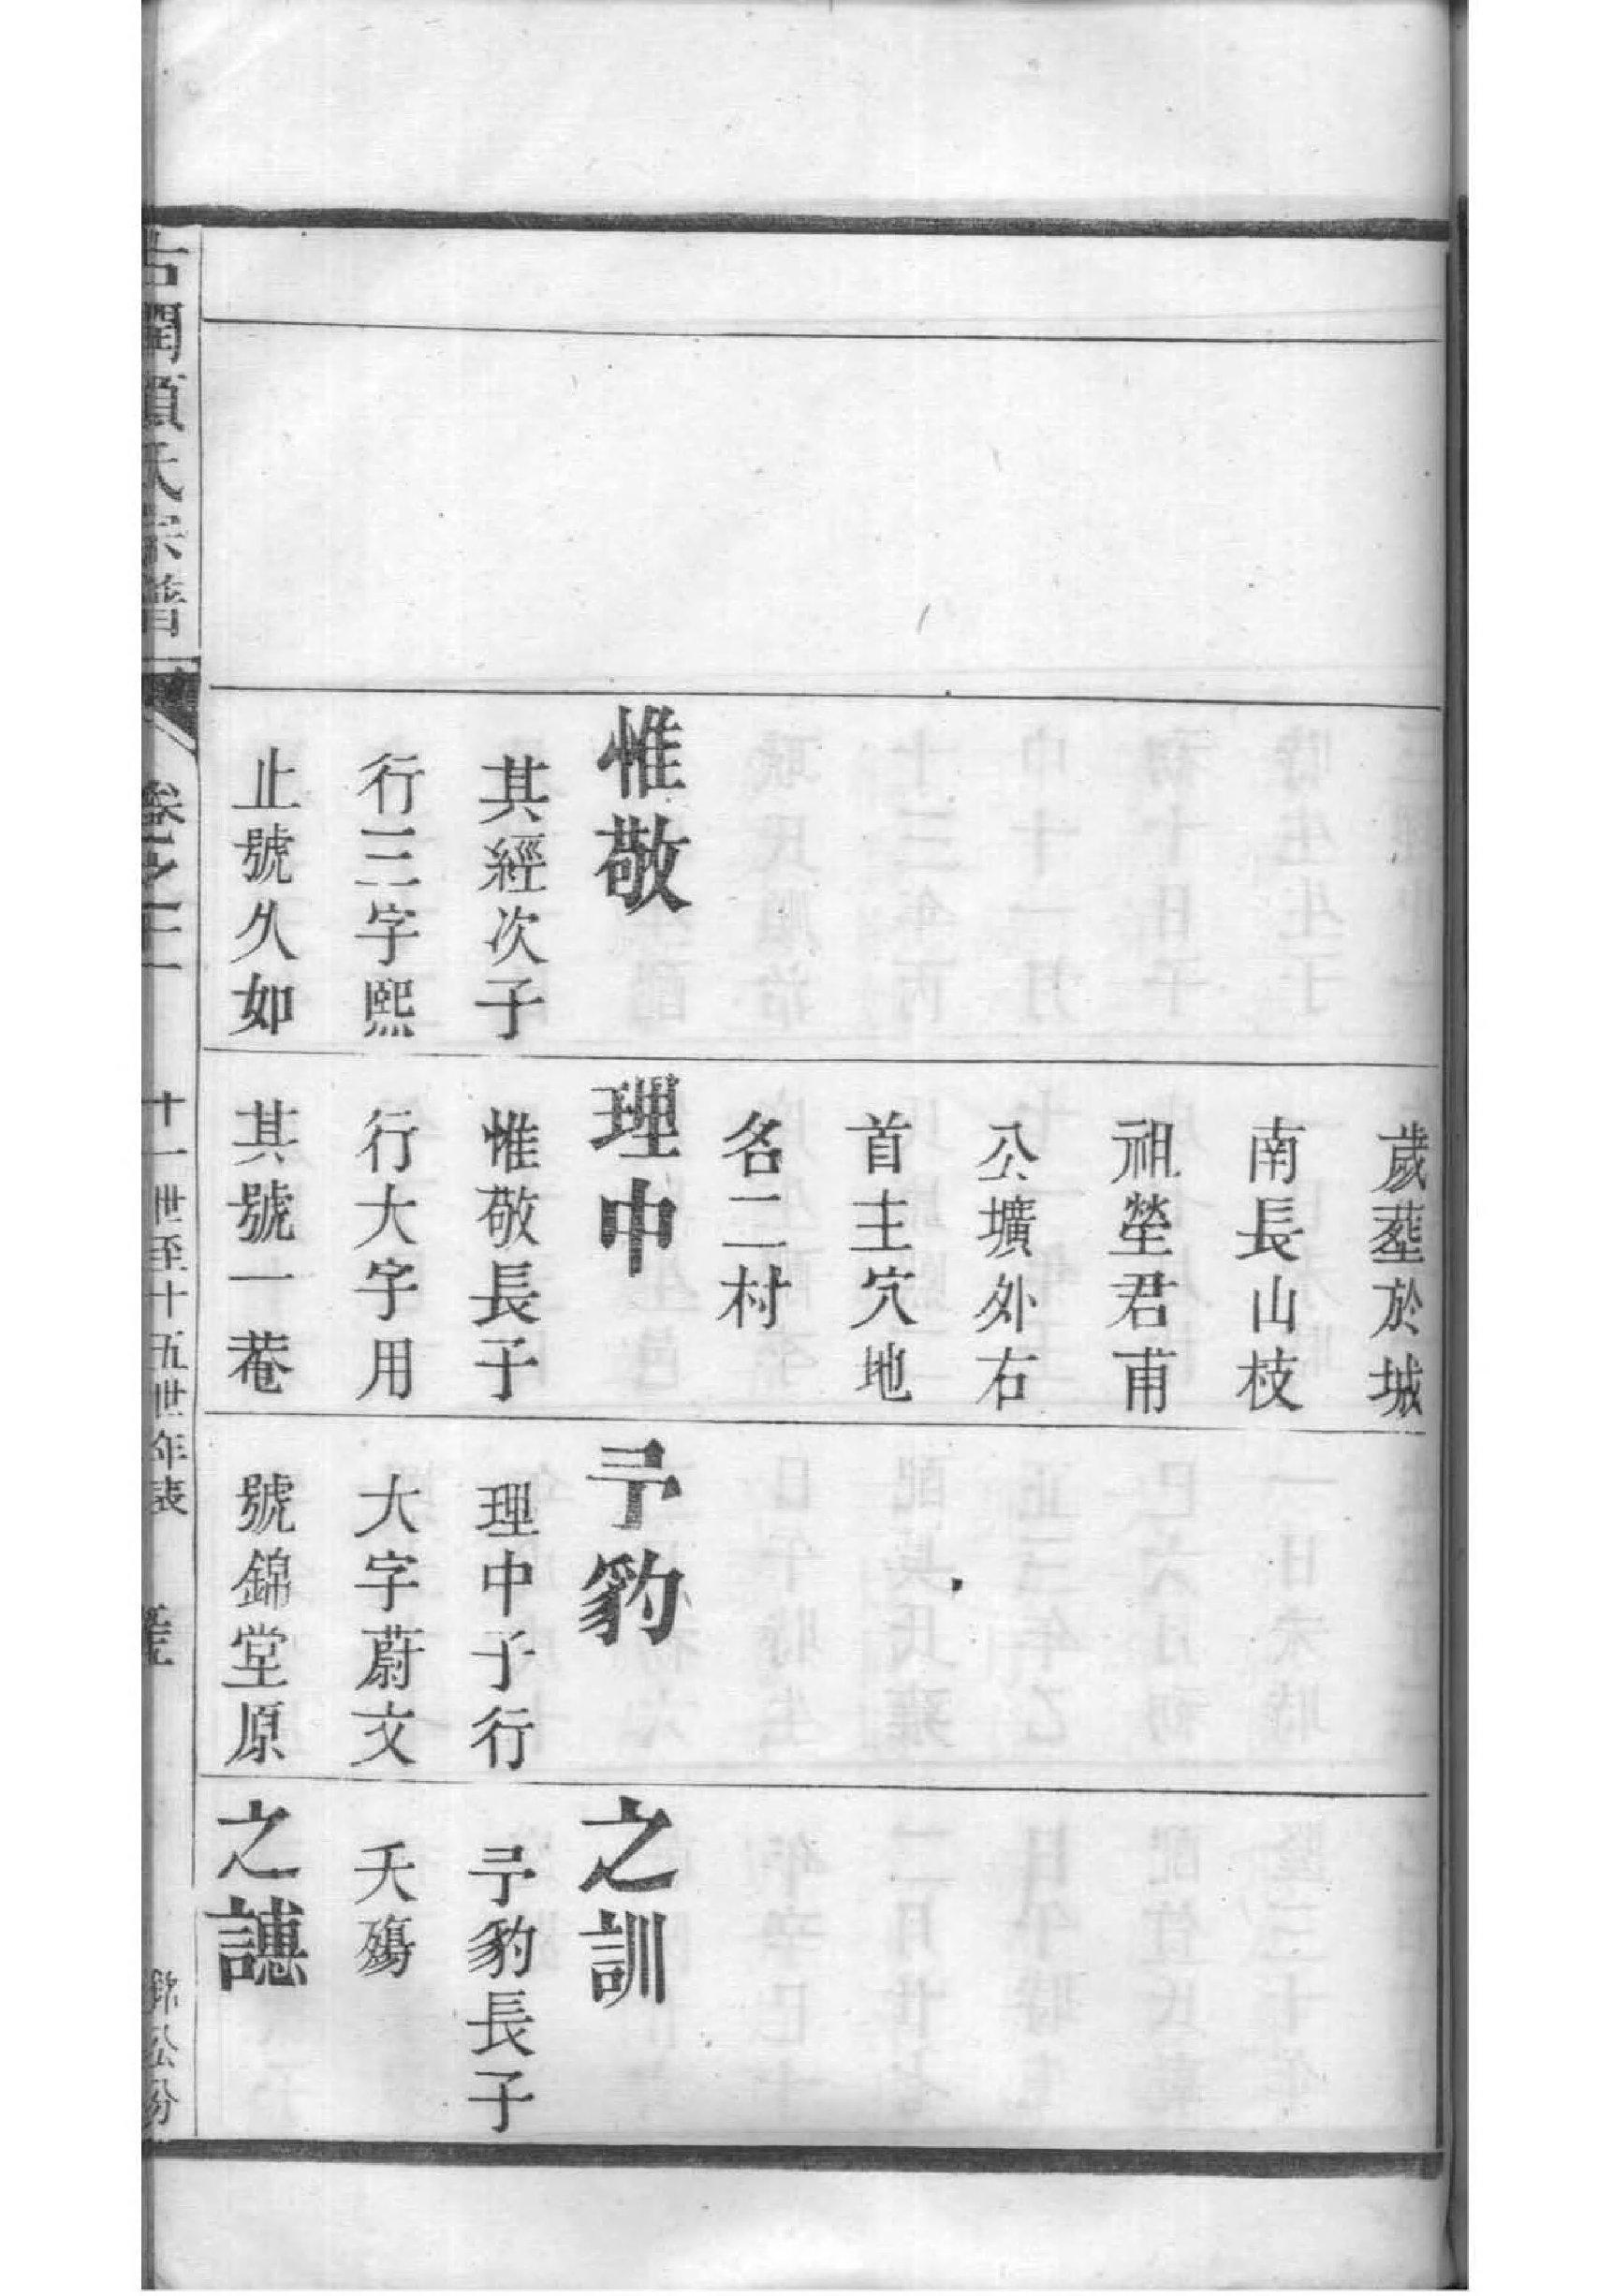 惟敬
其經次子
行三字熙
止號久如
歲塟於城
南長山枝
祖塋君甫
公壙外右
首主穴地
名二村
理中
惟敬長子
行大字用
其號一菴
予豹
理中子行
大字蔚文
號錦堂原
之訓
予豹長子
夭殤
之譓
氏宗譜
十一世至十五世年表